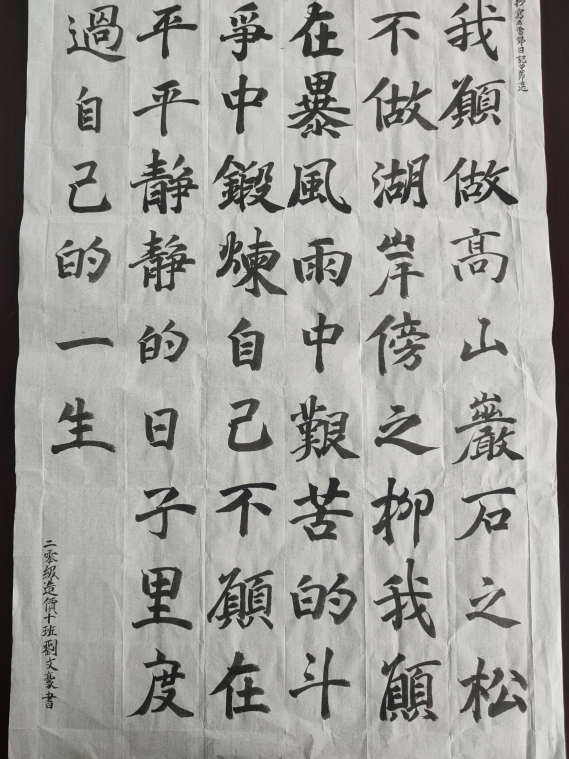 日記
我願做高山巖石之松
不做湖岸傍之柳我願
在暴風雨中艱苦的斗
爭中鍛煉自己不願在
平平靜靜的日子里度
過自己的一生
二零級造價十班劉文豪書